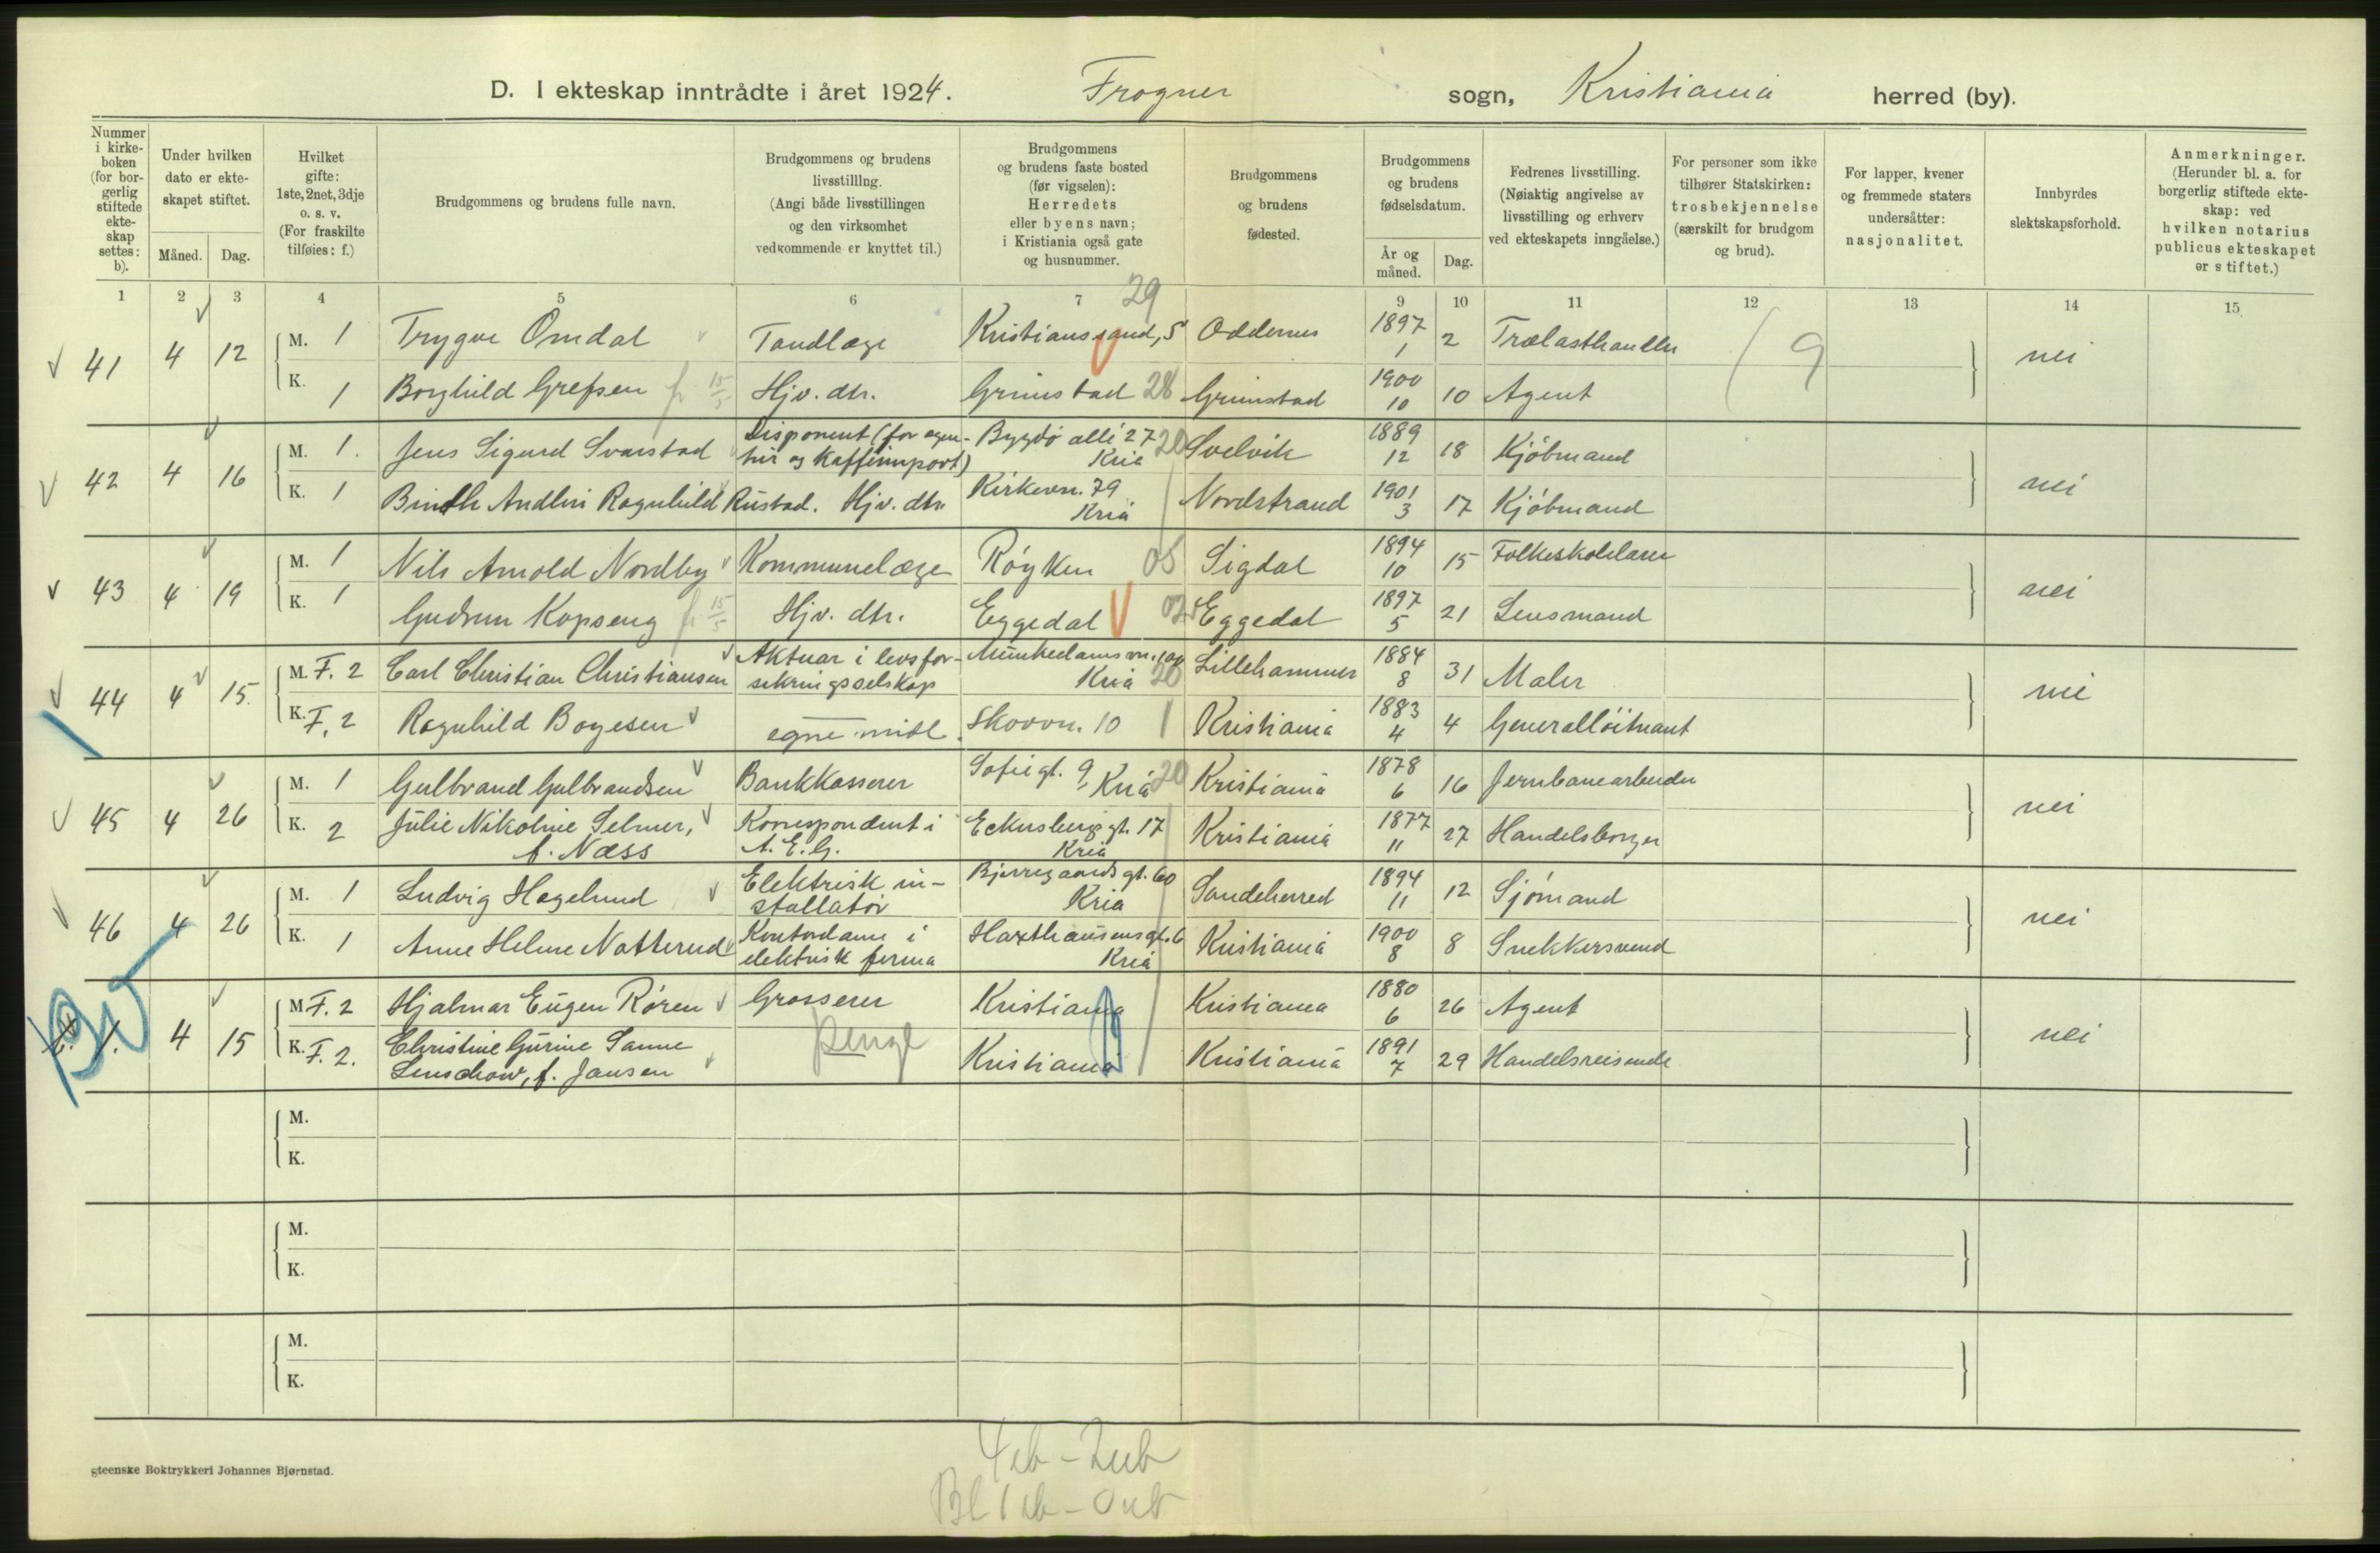 D. I ekteskap inntrådte i året 1924. Frogner sogn, Kristiania herred (by).
Nummer i kirke-boken (for bor-gerlig stiftede ekte-skap settes: b).
Under hvilken dato er ekte-skapet stiftet.
Måned. Dag.
Hvilket gifte: 1ste, 2net, 3dje o. s. v. (For fraskilte tilføies: f.)
Brudgommens og brudens fulle navn.
Brudgommens og brudens livsstilllng. (Angi både livsstillingen og den virksomhet vedkommende er knyttet til.)
Brudgommens og brudens faste bosted (før vigselen): Herredets eller byens navn; i Kristiania også gate og husnummer.
Brudgommens og brudens fødested.
Brudgommens og brudens fødselsdatum.
År og måned. Dag.
Fedrenes livsstilling. (Nøiaktig angivelse av livsstilling og erhverv ved ekteskapets inngåelse.)
For personer som ikke tilhører Statskirken: trosbekjennelse (særskilt for brudgom og brud).
For lapper, kvener og fremmede staters undersåtter: nasjonalitet.
Innbyrdes slektskapsforhold.
Anmerkninger. (Herunder bl. a. for borgerlig stiftede ekte-skap: ved hvilken notarius publicus ekteskapet er stiftet.)
1 2 3 4 5 6 7 9 10 11 12 13 14 15
29
41 4 12 M. 1 Trygve Omdal Tandlæge Kristianssand, S Oddernes 1897 1 2 Trælasthandler 9 nei
K. 1 Borghild Grefsen fr 15/5 Hjv. dtr. Grimstad 28 Grimstad 1900 10 10 Agent
42 4 16 M. 1. Jens Sigurd Svarstad Disponent (for agen-tur og kaffeimport) Bygdø allé 27 Kria 20 Svelvik 1889 12 18 Kjøbmand nei
K. 1 Andleri Ragnhild Rustad. Hjv. dtr. Kirkevn. 79 Kria Nordstrand 1901 3 17 Kjøbmand
43 4 19 M. 1 Nils Arnold Nordby Kommunelæge Røyken 05 Sigdal 1894 10 15 Folkeskolelærer nei
K. 1 Gudrun Kopseng fr 15/5 Hjv. dtr. Eggedal Eggedal 1897 5 21 Lensmand
44 4 15. M. F. 2 Carl Christian Christiansen Aktuar i livsfor-sikringsselskap Munkedamsvn. Kria 20 Lillehammer 1884 8 31 Maler nei
K. F. 2 Ragnhild Boyesen egne midl. Skovvn. 10 Kristiania 1883 4 4 Generalløitnant
45 4 26 M. 1 Gulbrand Gulbrandsen Bankkasserer Sofiegt. 9 Kria 20 Kristiania 1878 6 16 Jernbanearbeider nei
K. 2 Julie Nikoline Selmer, f. Næss Korrespondent i A. E. G. Eckersbergsgt. 17 Kria Kristiania 1877 11 27 Handelsborger
46 4 26 M. 1 Ludvig Hagelund Elektrisk in-stallatør Bjerregaards gt. 60 Kria Sandeherred 1894 11 12 Sjømand nei
K. 1 Anne Helene Notterud Kontordame i elektrisk firma Haxthausensgt. 6 Kria Kristiania 1900 8 8 Snekkersvend
4 15 M. F. 2 Hjalmar Eugen Røren Grosserer Kristiania Kristiania 1880 6 26 Agent nei
K. F. 2. Christine Gurine Sanne Lenschow, f. Jansen penge Kristiania Kristiania 1891 7 29 Handelsreisende
M.
K.
M.
K.
M.
K.
gteenske Boktrykkeri Johannes Bjørnstad.